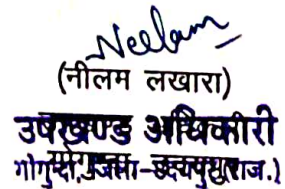 Neelam
(नीलम लखारा)
उपखण्ड अधिकारी
गोगुन्दा, जिला-उदयपुर(राज.)